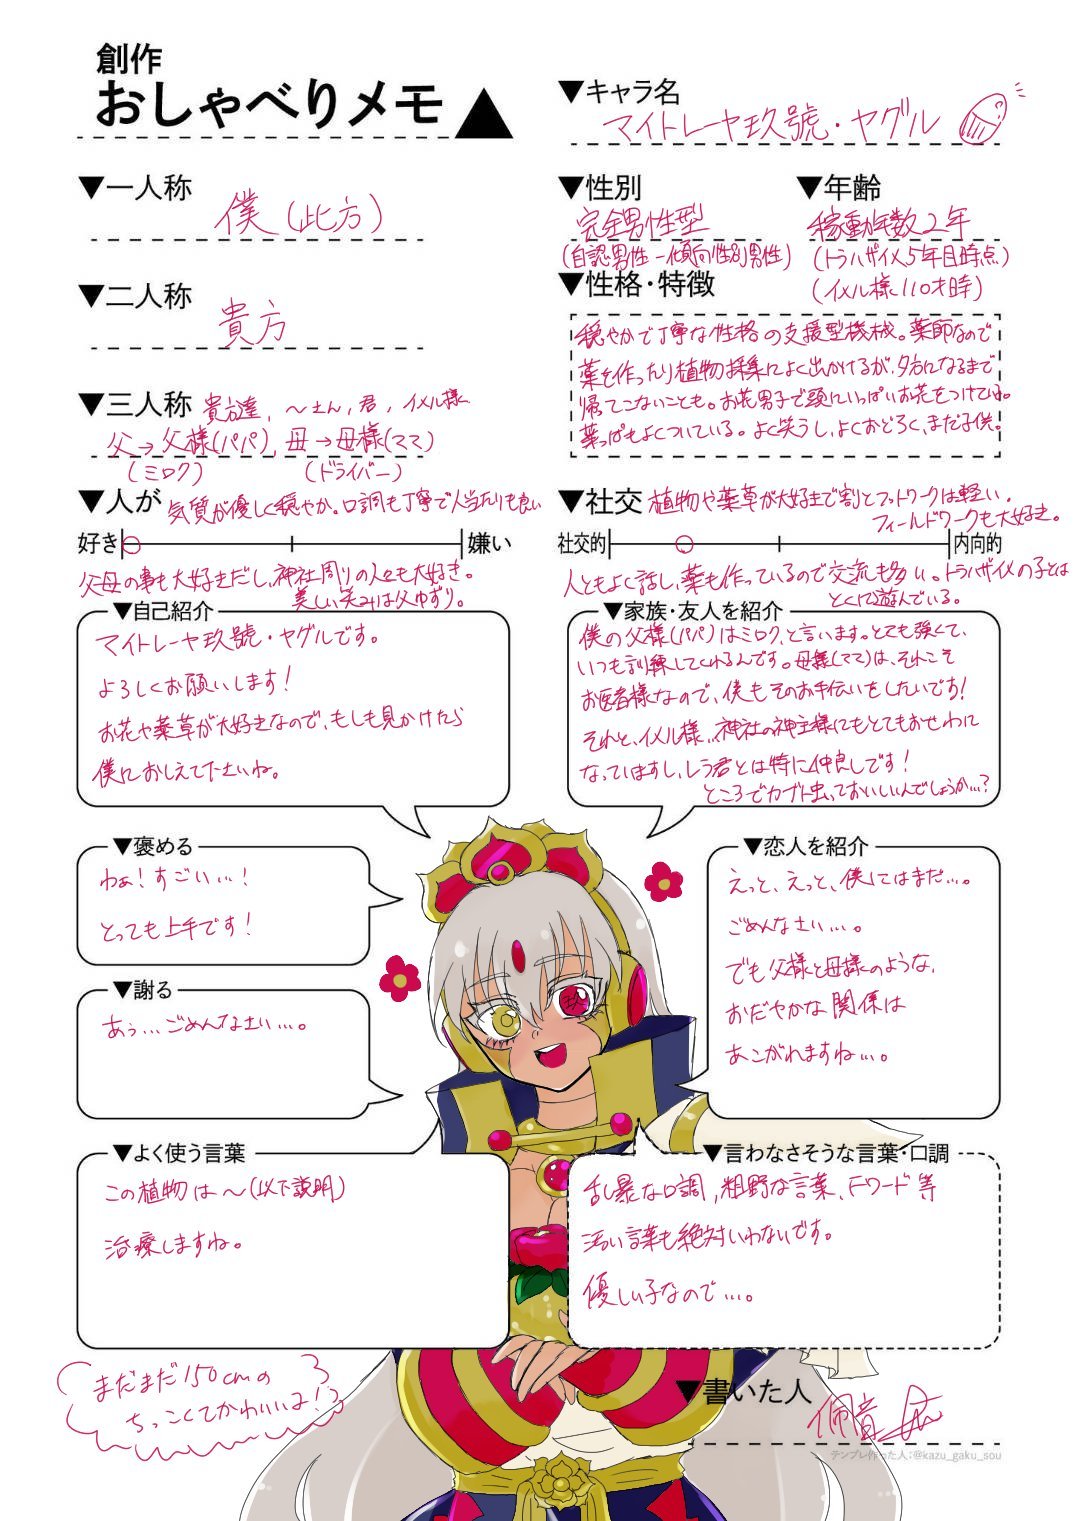 創作
おしゃべりメモ
▼キャラ名
マイトレーヤ玖號・ヤグル
▼一人称
僕（此方）
▼性別
完全男性型
（自認男性－傾向性別男性）
▼年齢
稼動年数2年
（トラハザイメ5年目時点）
（イメル様110才時）
▼二人称
貴方
▼性格・特徴
穏やかで丁寧な性格の支援型機械。薬師なので
薬を作ったり植物採集によく出かけるが、夕方になるまで
帰ってこないことも。お花男子で頭にいっぱいお花をつけている。
葉っぱもよくついている。よく笑うし、よくおどろく、まだ子供。
▼三人称
貴方達、〜さん、君、イメル様
父→父様（パパ）、母→母様（ママ）
（ミロク）
（ドライバー）
▼人が
気質が優しく穏やか。口調も丁寧で人当たりも良い
好き
嫌い
父母の事も大好きだし、神社周りの人々も大好き。
美しい笑みは父ゆずり。
▼社交
植物や薬草が大好きで割とフットワークは軽い。
フィールドワークも大好き。
社交的
内向的
人ともよく話し、薬も作っているので交流も多い。トラハザイメの子とは
とくに遊んでいる。
▼自己紹介
マイトレーヤ玖號・ヤグルです。
よろしくお願いします！
お花や薬草が大好きなので、もしも見かけたら
僕におしえて下さいね。
▼家族・友人を紹介
僕の父様（パパ）はミロク、と言います。とても強くて、
いつも訓練してくれるんです。母様（ママ）は、それこそ
お医者様なので、僕もそのお手伝いをしたいです！
それと、イメル様、神社の神主様にもとてもおせわに
なっていますし、レラ君とは特に仲良しです！
ところでカブト虫っておいしいんでしょうか…？
▼褒める
わぁ！すごい…！
とっても上手です！
▼恋人を紹介
えっと、えっと、僕にはまだ…。
ごめんなさい…。
でも父様と母様のような、
おだやかな関係は
あこがれますね…。
▼謝る
あぅ…ごめんなさい…。
▼よく使う言葉
この植物は〜（以下説明）
治療しますね。
▼言わなさそうな言葉・口調
乱暴な口調、粗野な言葉、Fワード等
汚い言葉も絶対いわないです。
優しい子なので…。
まだまだ150cmの
ちっこくてかわいいよ！
▼書いた人
テンプレ作った人：@kazu_gaku_sou
玖